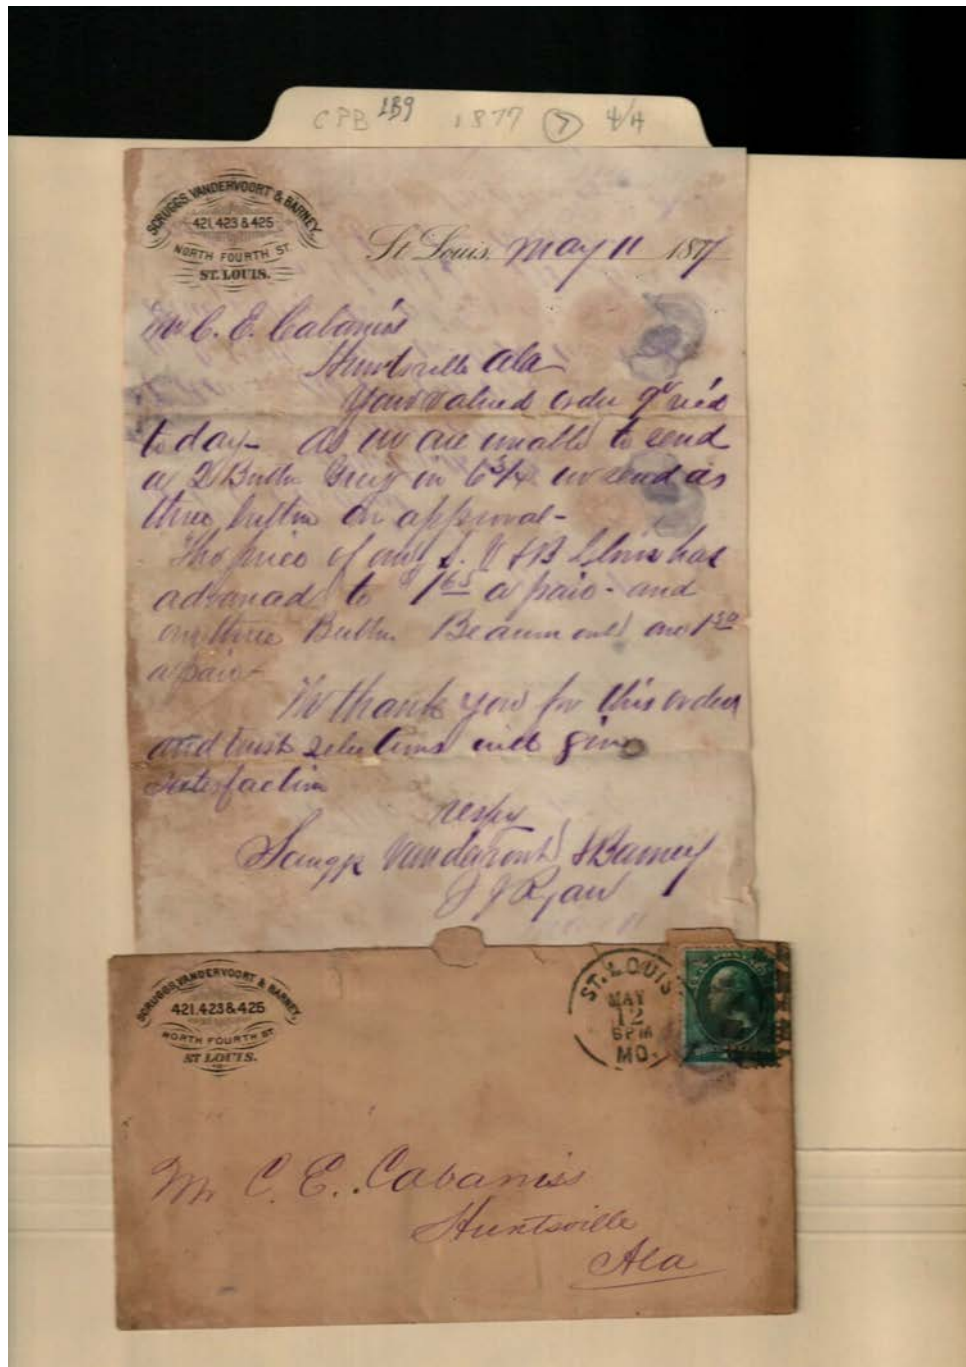 CPB 1B9 1877 7 4/4
SCRUGGS, VANDERVOORT & BARNEY,
421, 423 & 425
NORTH FOURTH ST.
ST. LOUIS.
St Louis, May 11 1877
Mr C. E. Cabaniss
Huntsville Ala
Your valued order rec'd
today - As we are unable to send
a 2 Button Grey in 6 3/4 we send as
three button on approval -
The price of our S. V & B Glove has
advanced to $1 65 a pair - and
our three Button Beaumont are 1 50
a pair -
We thank you for this order
and trust selections will give
satisfaction
Scruggs Vandervoort & Barney
J J Ryan
SCRUGGS, VANDERVOORT & BARNEY,
421, 423 & 425
NORTH FOURTH ST.
ST LOUIS.
ST. LOUIS
MAY
12
6 PM
MO.
Mr C. E. Cabaniss
Huntsville
Ala